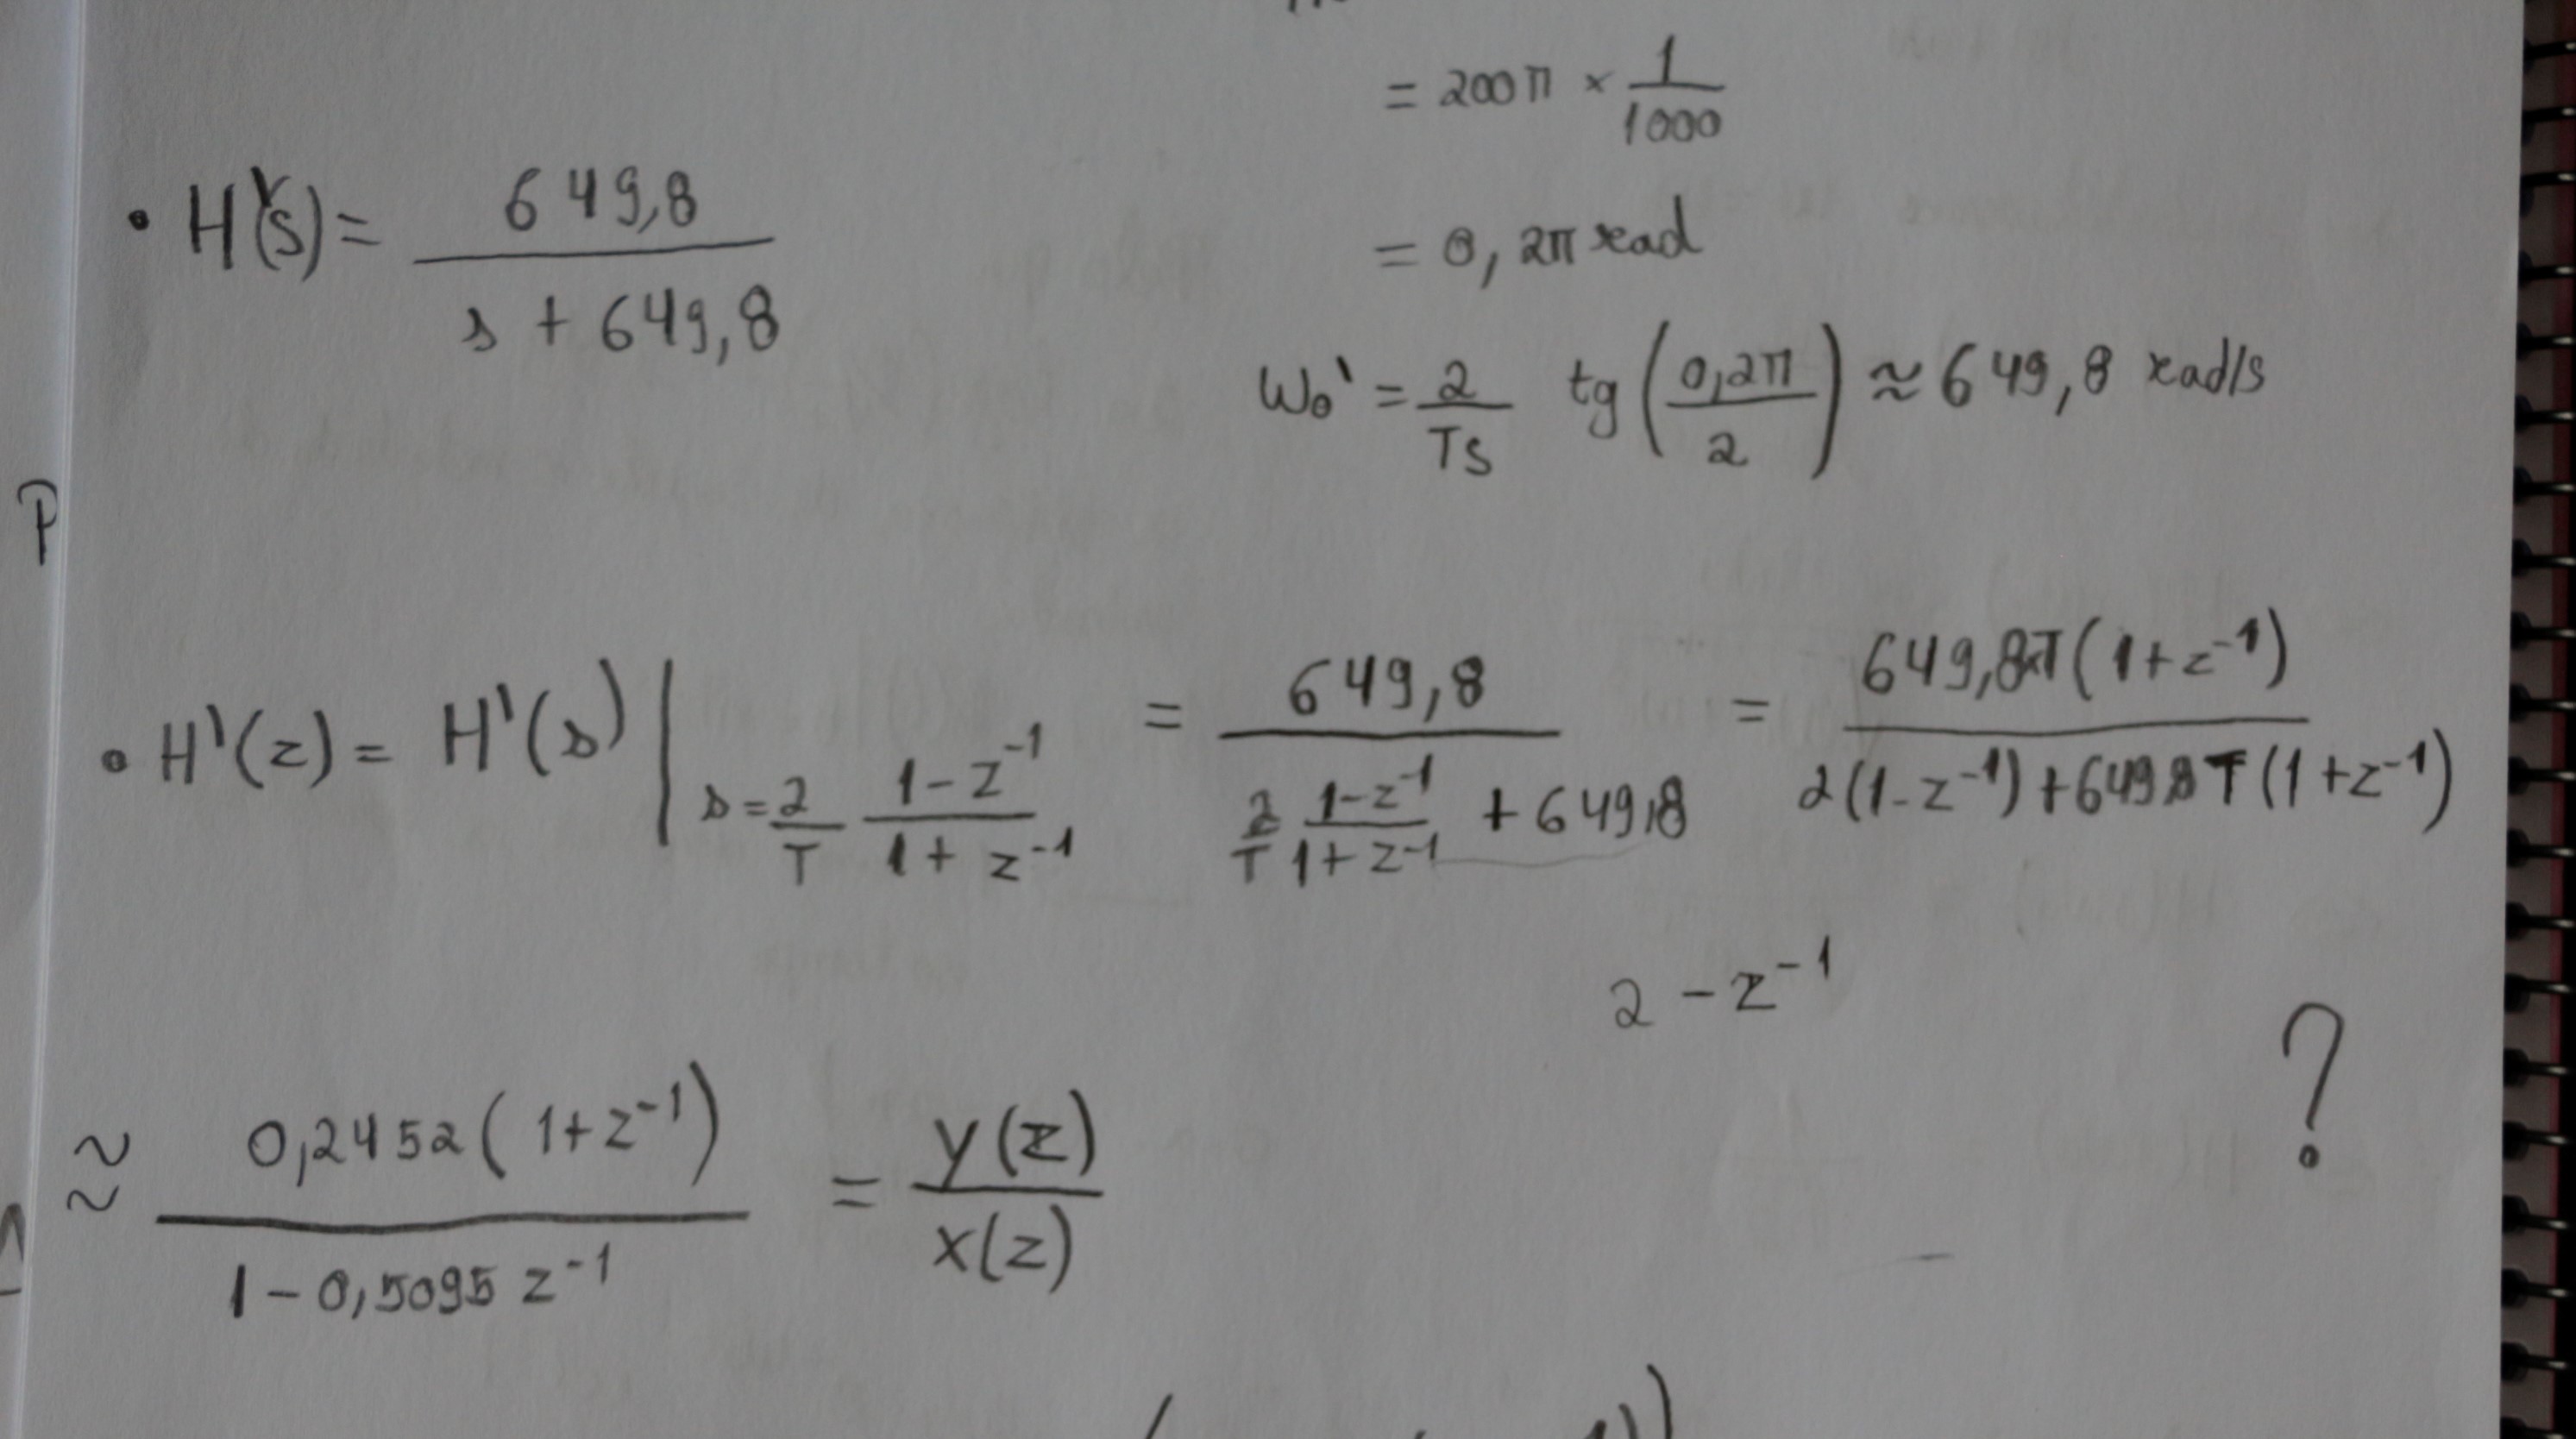 = 200π × 1/1000
• H'(s) = 649,8 / s + 649,8
= 0,2π rad
W₀' = 2/TS tg(0,2π/2) ≈ 649,8 rad/s
P
• H'(z) = H'(s) | s = 2/T 1-z⁻¹/1+z⁻¹ = 649,8 / 2/T 1-z⁻¹/1+z⁻¹ + 649,8 = 649,8T(1+z⁻¹) / 2(1-z⁻¹)+649,8T(1+z⁻¹)
2 - z⁻¹
?
≈ 0,2452(1+z⁻¹) / 1-0,5095 z⁻¹ = y(z)/x(z)